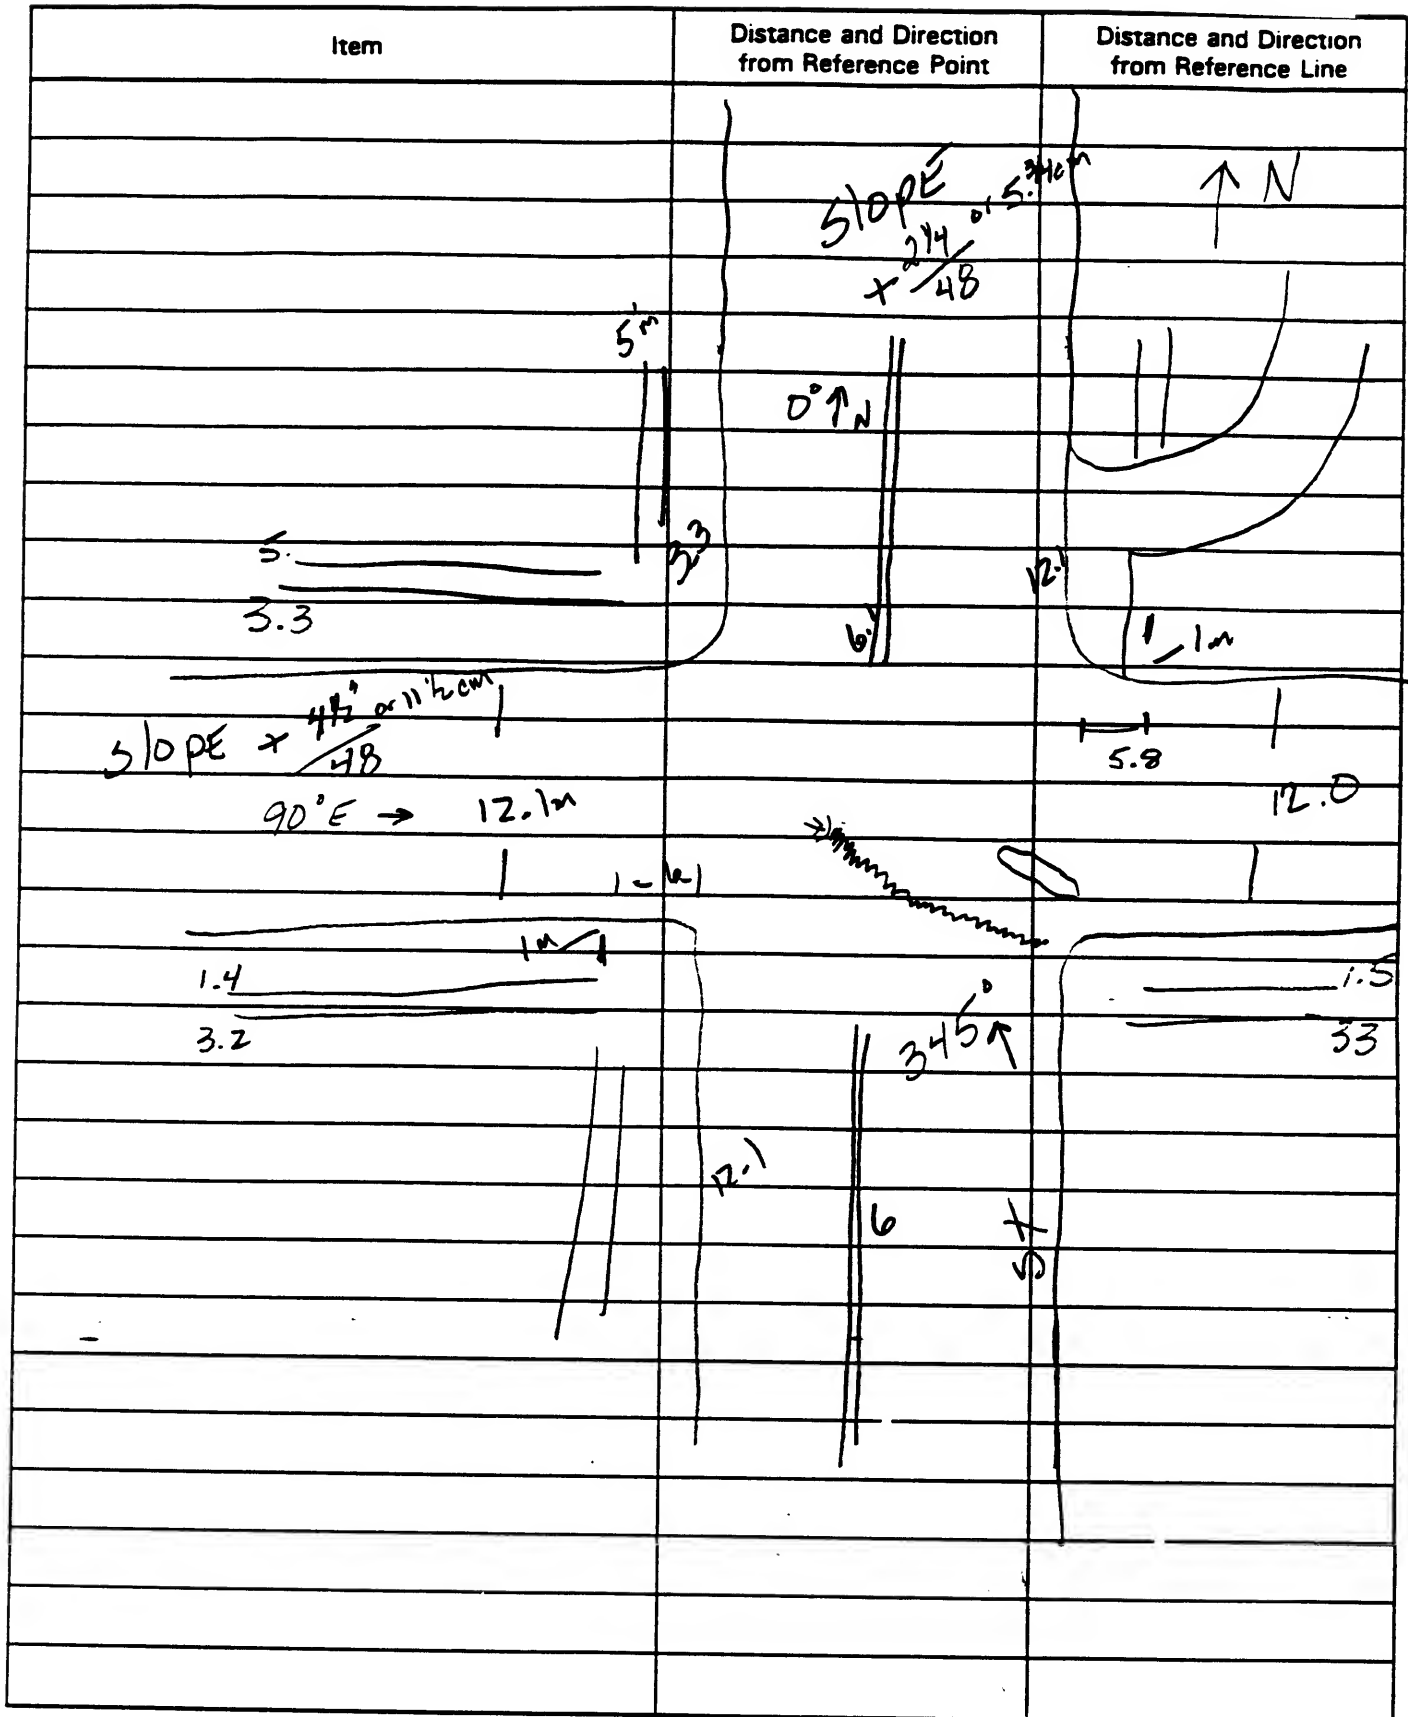 Item
Distance and Direction
from Reference Point
Distance and Direction
from Reference Line
↑ N
SlOPE
+ 2 1/4 / 48 or 5.3/4cm
5'm
0° ↑ N
5.
3.3
3.3
12.1
6.1
1m
SlOPE + 4 1/2" or 11 1/2 cm
/48
5.8
12.0
90°E → 12.1m
1m
1.4
1.5
345° ↑
3.2
33
12.1
6